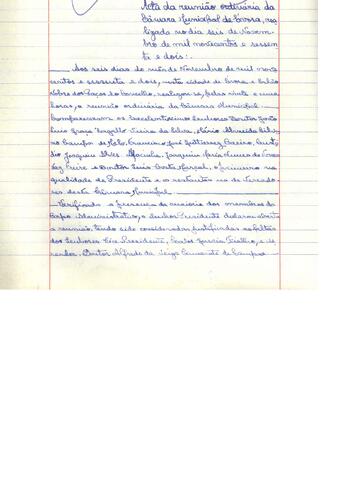 Acta da reunião ordinária da
Câmara Municipal de Évora, rea
lizada no dia seis de Novem-
bro de mil novecentos e sessen
ta e dois:.
Aos seis dias do mês de Novembro de mil nove
centos e sessenta e dois, nesta cidade de Évora e Salão
Nobre dos Paços do Concelho, realizou-se, pelas vinte e uma
horas, a reunião ordinária da Câmara Municipal.
Compareceram os Excelentíssimos Senhores Doutor
Luis Graça Vieira da Silva, Mário
de Melo, Francisco José Gutierrez Barreiro,
dio Joaquim Alves Joaquim Maria
e Doutor Luis Costa o primeiro na
qualidade de Presidente e os restantes na de Vereado-
res desta Câmara Municipal.
Verificada a presença da maioria dos membros do
Corpo Administrativo, o Senhor Presidente declarou aberta
a reunião, tendo sido consideradas justificadas as faltas
dos Senhores Vice-Presidente, e Ve-
reador, Doutor Alfredo da Veiga de Campos